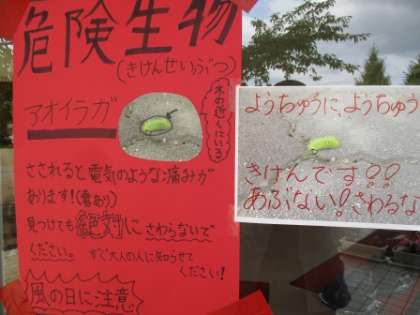 危険生物
(きけんせいぶつ)
アオイラガ
木の近くにいる
さされると電気のような痛みが
あります!(毒あり)
見つけても絶対にさわらないで
ください。すぐ大人の人に知らせて
ください!
風の日に注意
ようちゅうに、ようちゅう
きけんです!!
あぶない!さわるな